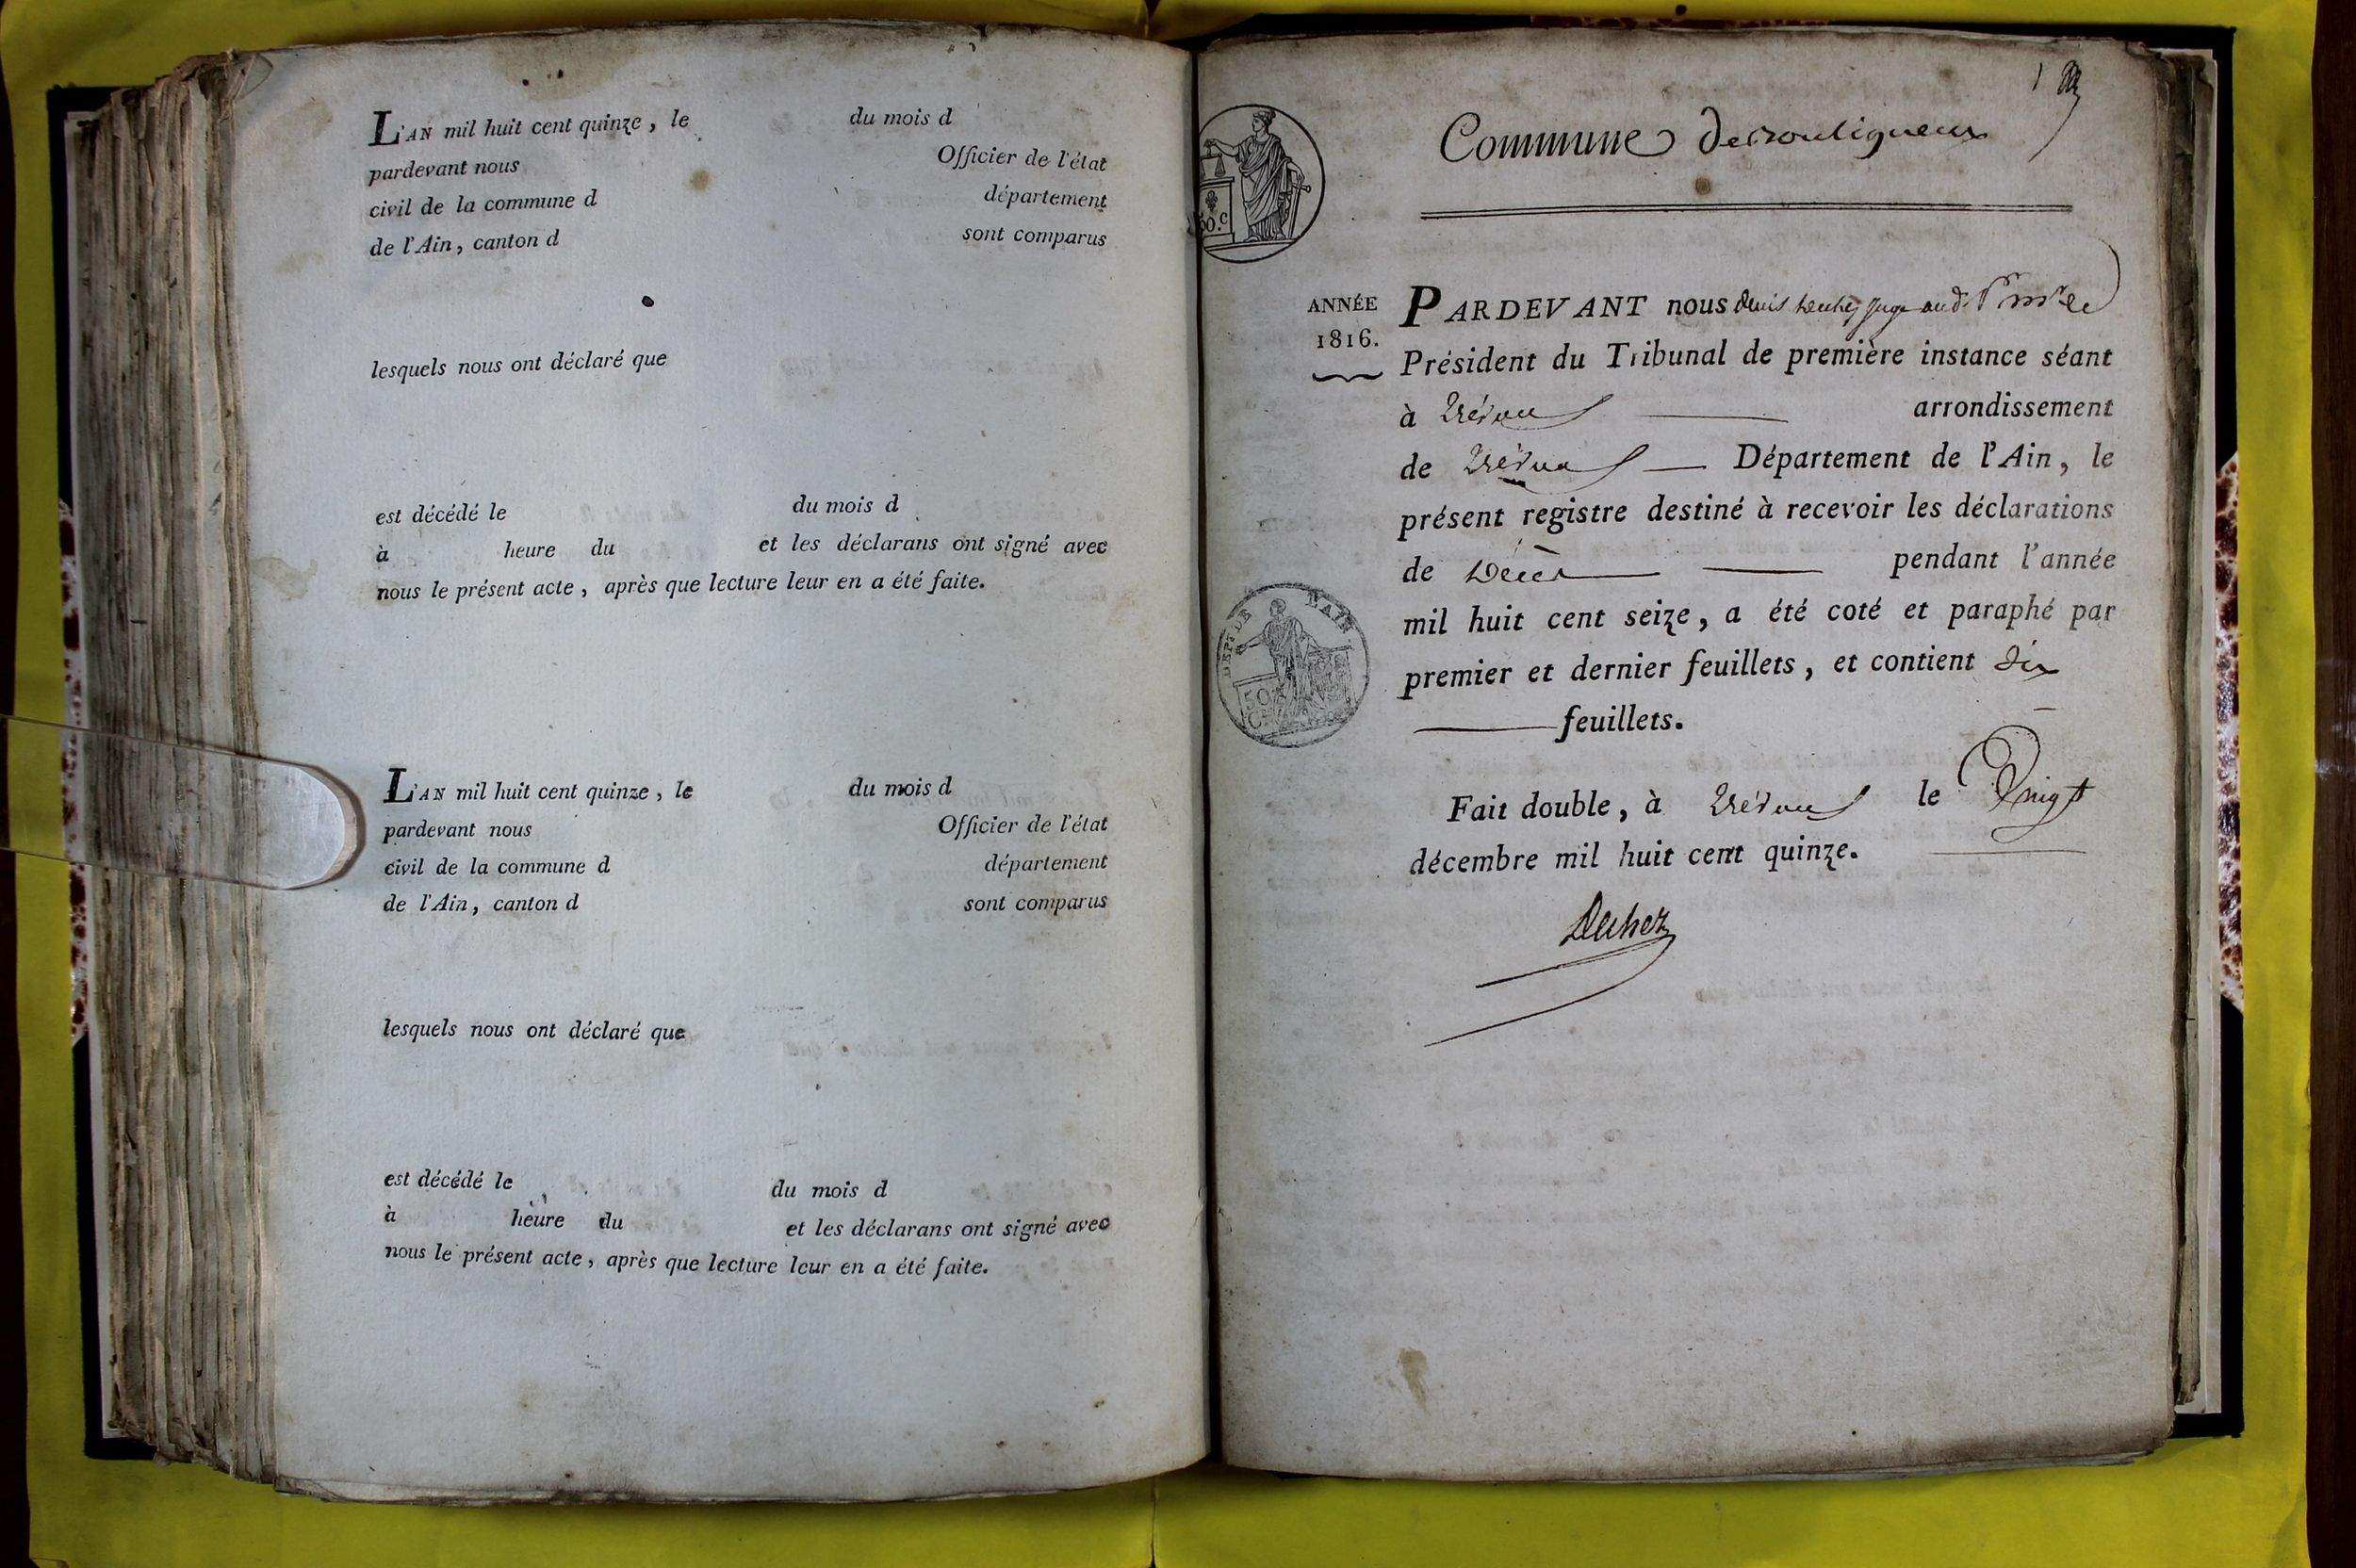 L'AN mil huit cent quinze, le du mois d
pardevant nous Officier de l'état
civil de la commune d département
de l'Ain, canton d sont comparus
lesquels nous ont déclaré que
est décédé le du mois d
à heure du et les déclarans ont signé avec
nous le présent acte, après que lecture leur en a été faite.
L'AN mil huit cent quinze, le du mois d
pardevant nous Officier de l'état
civil de la commune d département
de l'Ain, canton d sont comparus
lesquels nous ont déclaré que
est décédé le du mois d
à heure du et les déclarans ont signé avec
nous le présent acte, après que lecture leur en a été faite.
1
Commune
50.c
ANNÉE
1816.
PARDEVANT nous Denis
Président du Tribunal de première instance séant
à Trévoux arrondissement
de Trévoux Département de l'Ain, le
présent registre destiné à recevoir les déclarations
de Décès pendant l'année
mil huit cent seize, a été coté et paraphé par
premier et dernier feuillets, et contient dix
feuillets.
DEPT DE L'AIN
50
Fait double, à Trévoux le Vingt
décembre mil huit cent quinze.